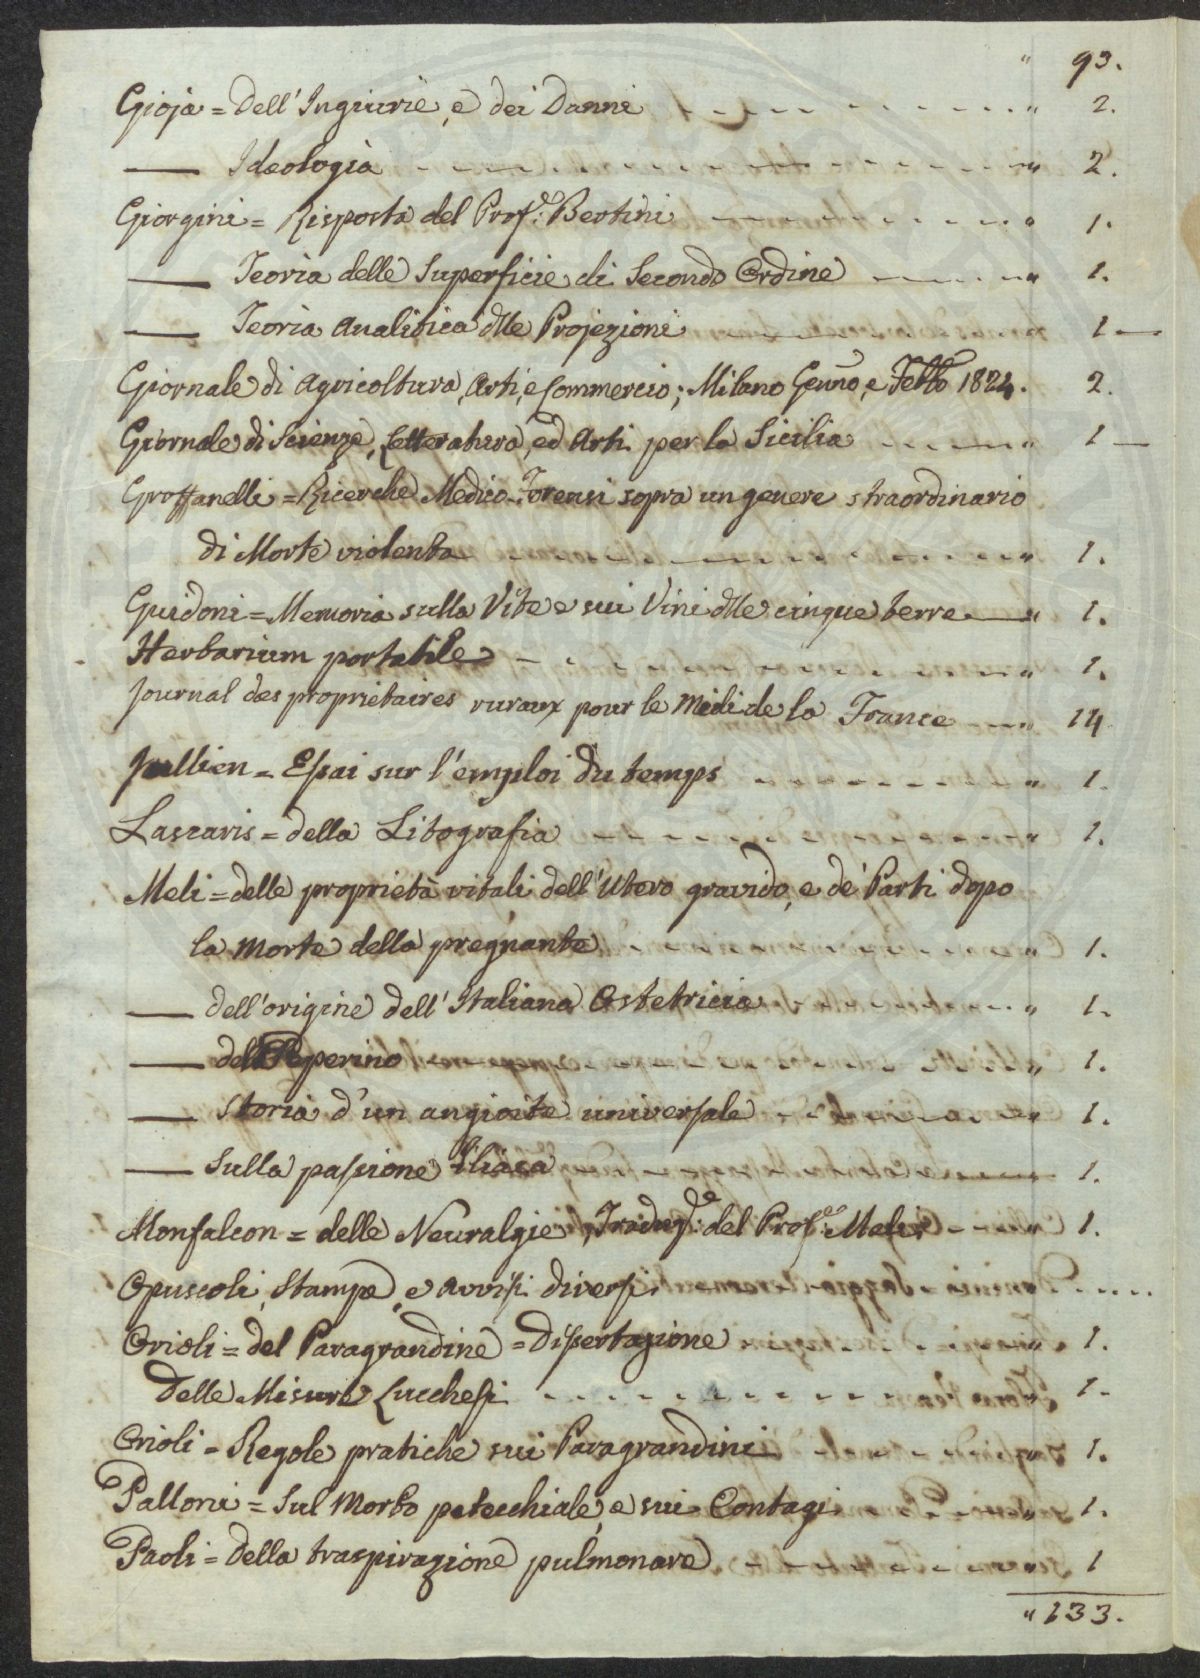 " 93.
Gioja = Dell'Ingiurie, e dei Danni " 2.
—— Ideologia " 2.
Giorgini = Risposta del Prof.e Bertini " 1.
—— Teoria delle Superficie di Secondo Ordine " 1.
—— Teoria Analitica dlle Projezioni 1 —
Giornale di Agricoltura, Arti, e Commercio; Milano Genno, e Febbo 1824. 2.
Giornale di Scienze, Letteratura, ed Arti per la Sicilia " 1 —
Groffanelli = Ricerche Medico-Forensi sopra un genere straordinario
di Morte violenta " 1.
Guidoni = Memoria sulla Vite e sui Vini dlle cinque terre " 1.
Herbarium portabile " 1.
Journal des propriètaires ruraux pour le Midi de la France " 14
Jullien = Essai sur l'emploi du temps " 1.
Lascaris = della Litografia " 1.
Meli = delle proprietà vitali dell'Utero gravido, e de' Parti dopo
la Morte della pregnante " 1.
—— dell'origine dell'Italiana Ostetricia " 1.
—— del Peperino " 1.
—— Storia d'un angioite universale " 1.
—— Sulla passione Iliaca " 1.
Monfalcon = delle Neuralgie, Traduz.e del Prof.e Meli 1.
Opuscoli, Stampe, e Avvisi diversi
Orioli = del Paragrandine = Dissertazione " 1.
Delle Misure Lucchesi " 1.
Orioli = Regole pratiche sui Paragrandini " 1.
Palloni = Sul Morbo petecchiale, e sui Contagi " 1.
Paoli = Della traspirazione pulmonare " 1
" 133.